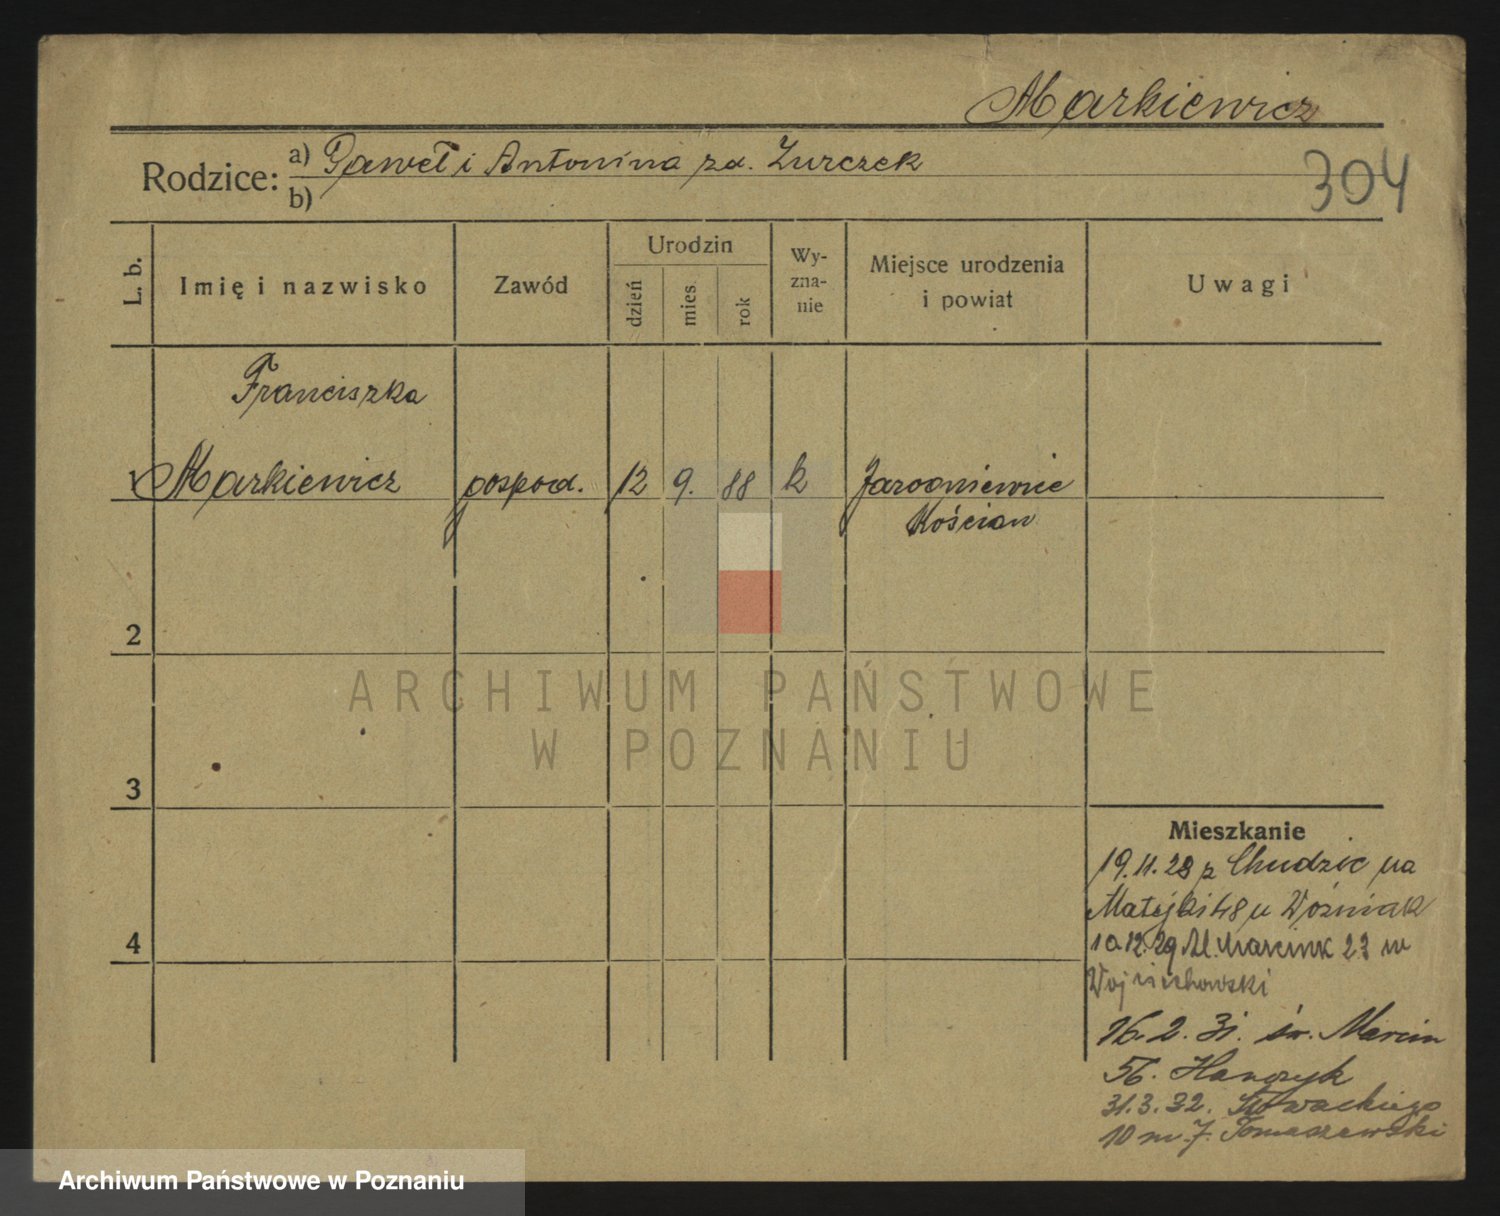 Markiewicz
304
Rodzice: a) Paweł i Antonina zd. Żurczek
b)
L. b. Imię i nazwisko Zawód Urodzin dzień mies. rok Wy-zna-nie Miejsce urodzenia i powiat Uwagi
Franciszka
1 Markiewicz gospod. 12 9. 88 k Jarogniewice
Kościan
2
3
4
Mieszkanie
19.11.28 z Chudzic na
Matejki 48 u Woźniak
10.12.29 Al. Marcink 23 m
Wojciechowski
16.2.31. św. Marcin
56. Hanczyk
31.3.32. Słowackiego
10 m. 7. Tomaszewski
ARCHIWUM PAŃSTWOWE
W POZNANIU
Archiwum Państwowe w Poznaniu